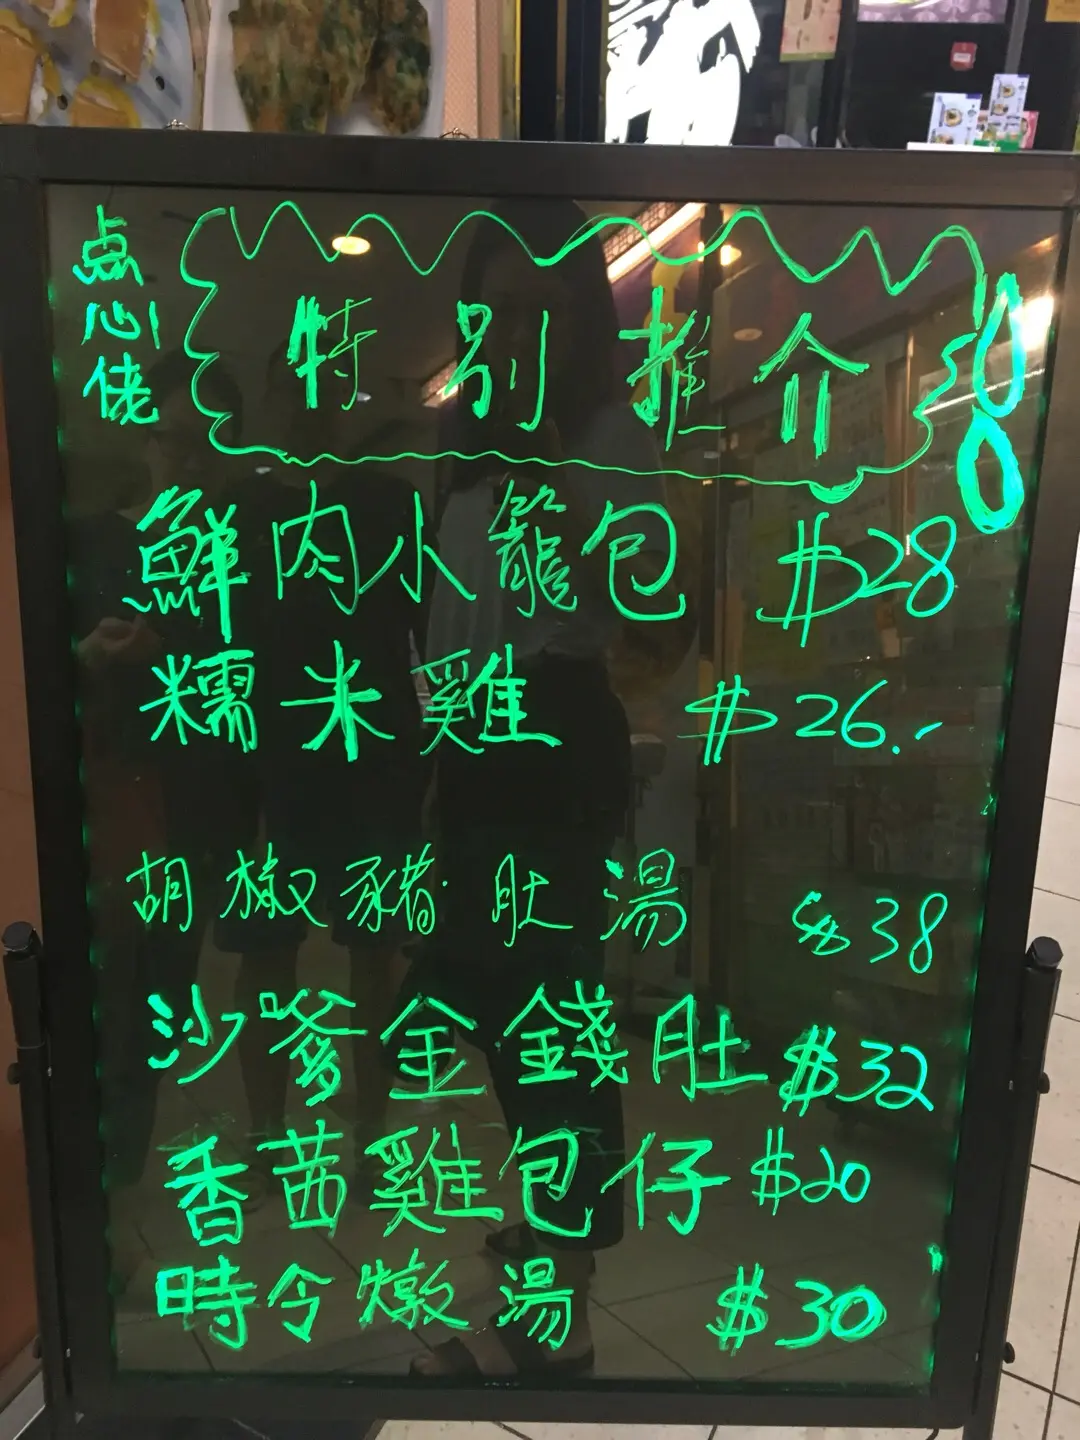 点心佬
特别推介!
鮮肉小籠包 $28
糯米雞 $26.-
胡椒豬肚湯 $38
沙爹金錢肚 $32
香茜雞包仔 $20
時令燉湯 $30